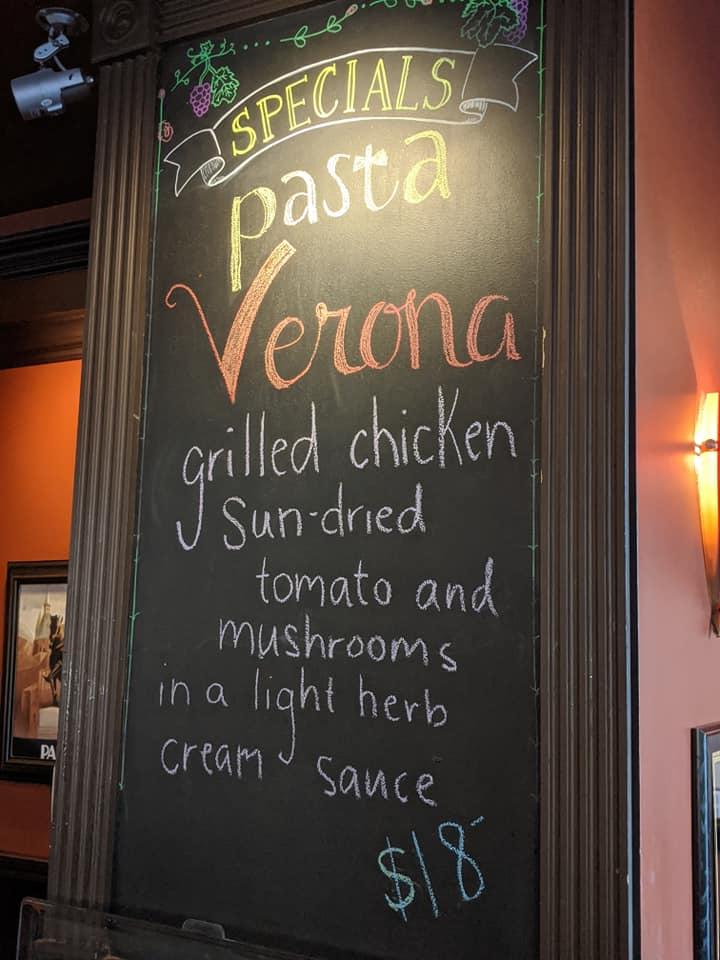 SPECIALS
pasta
Verona
grilled chicken
sun-dried
tomato and
mushrooms
in a light herb
cream sauce
$18
PA